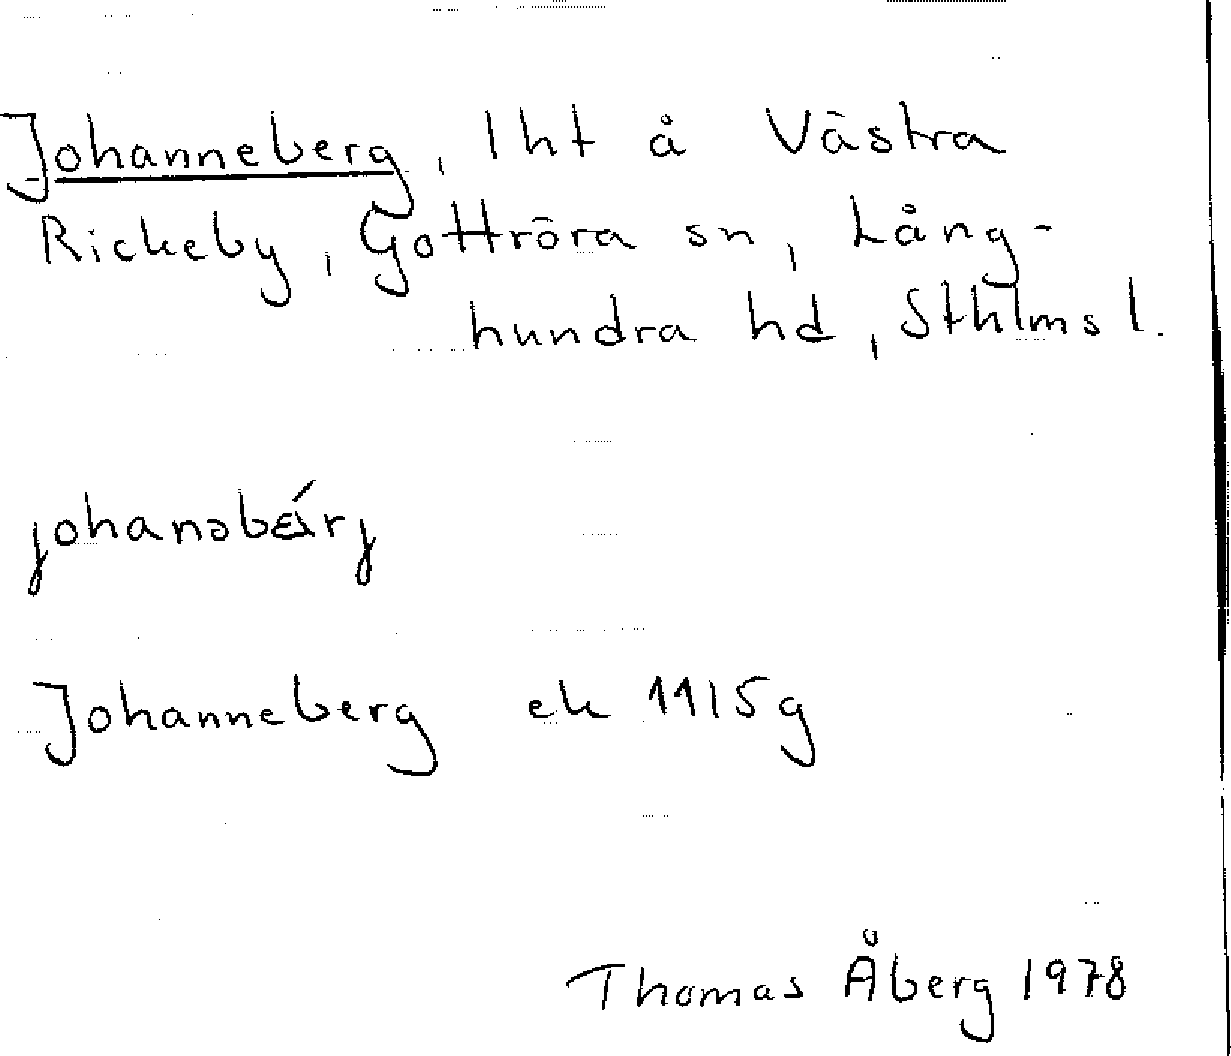 Johanneberg, lht å Västra
Rickeby, Gottröra sn, Lång-
hundra hd, Sthlms l.
johanəbǽrj
Johanneberg ek 11I5g
Thomas Åberg 1978